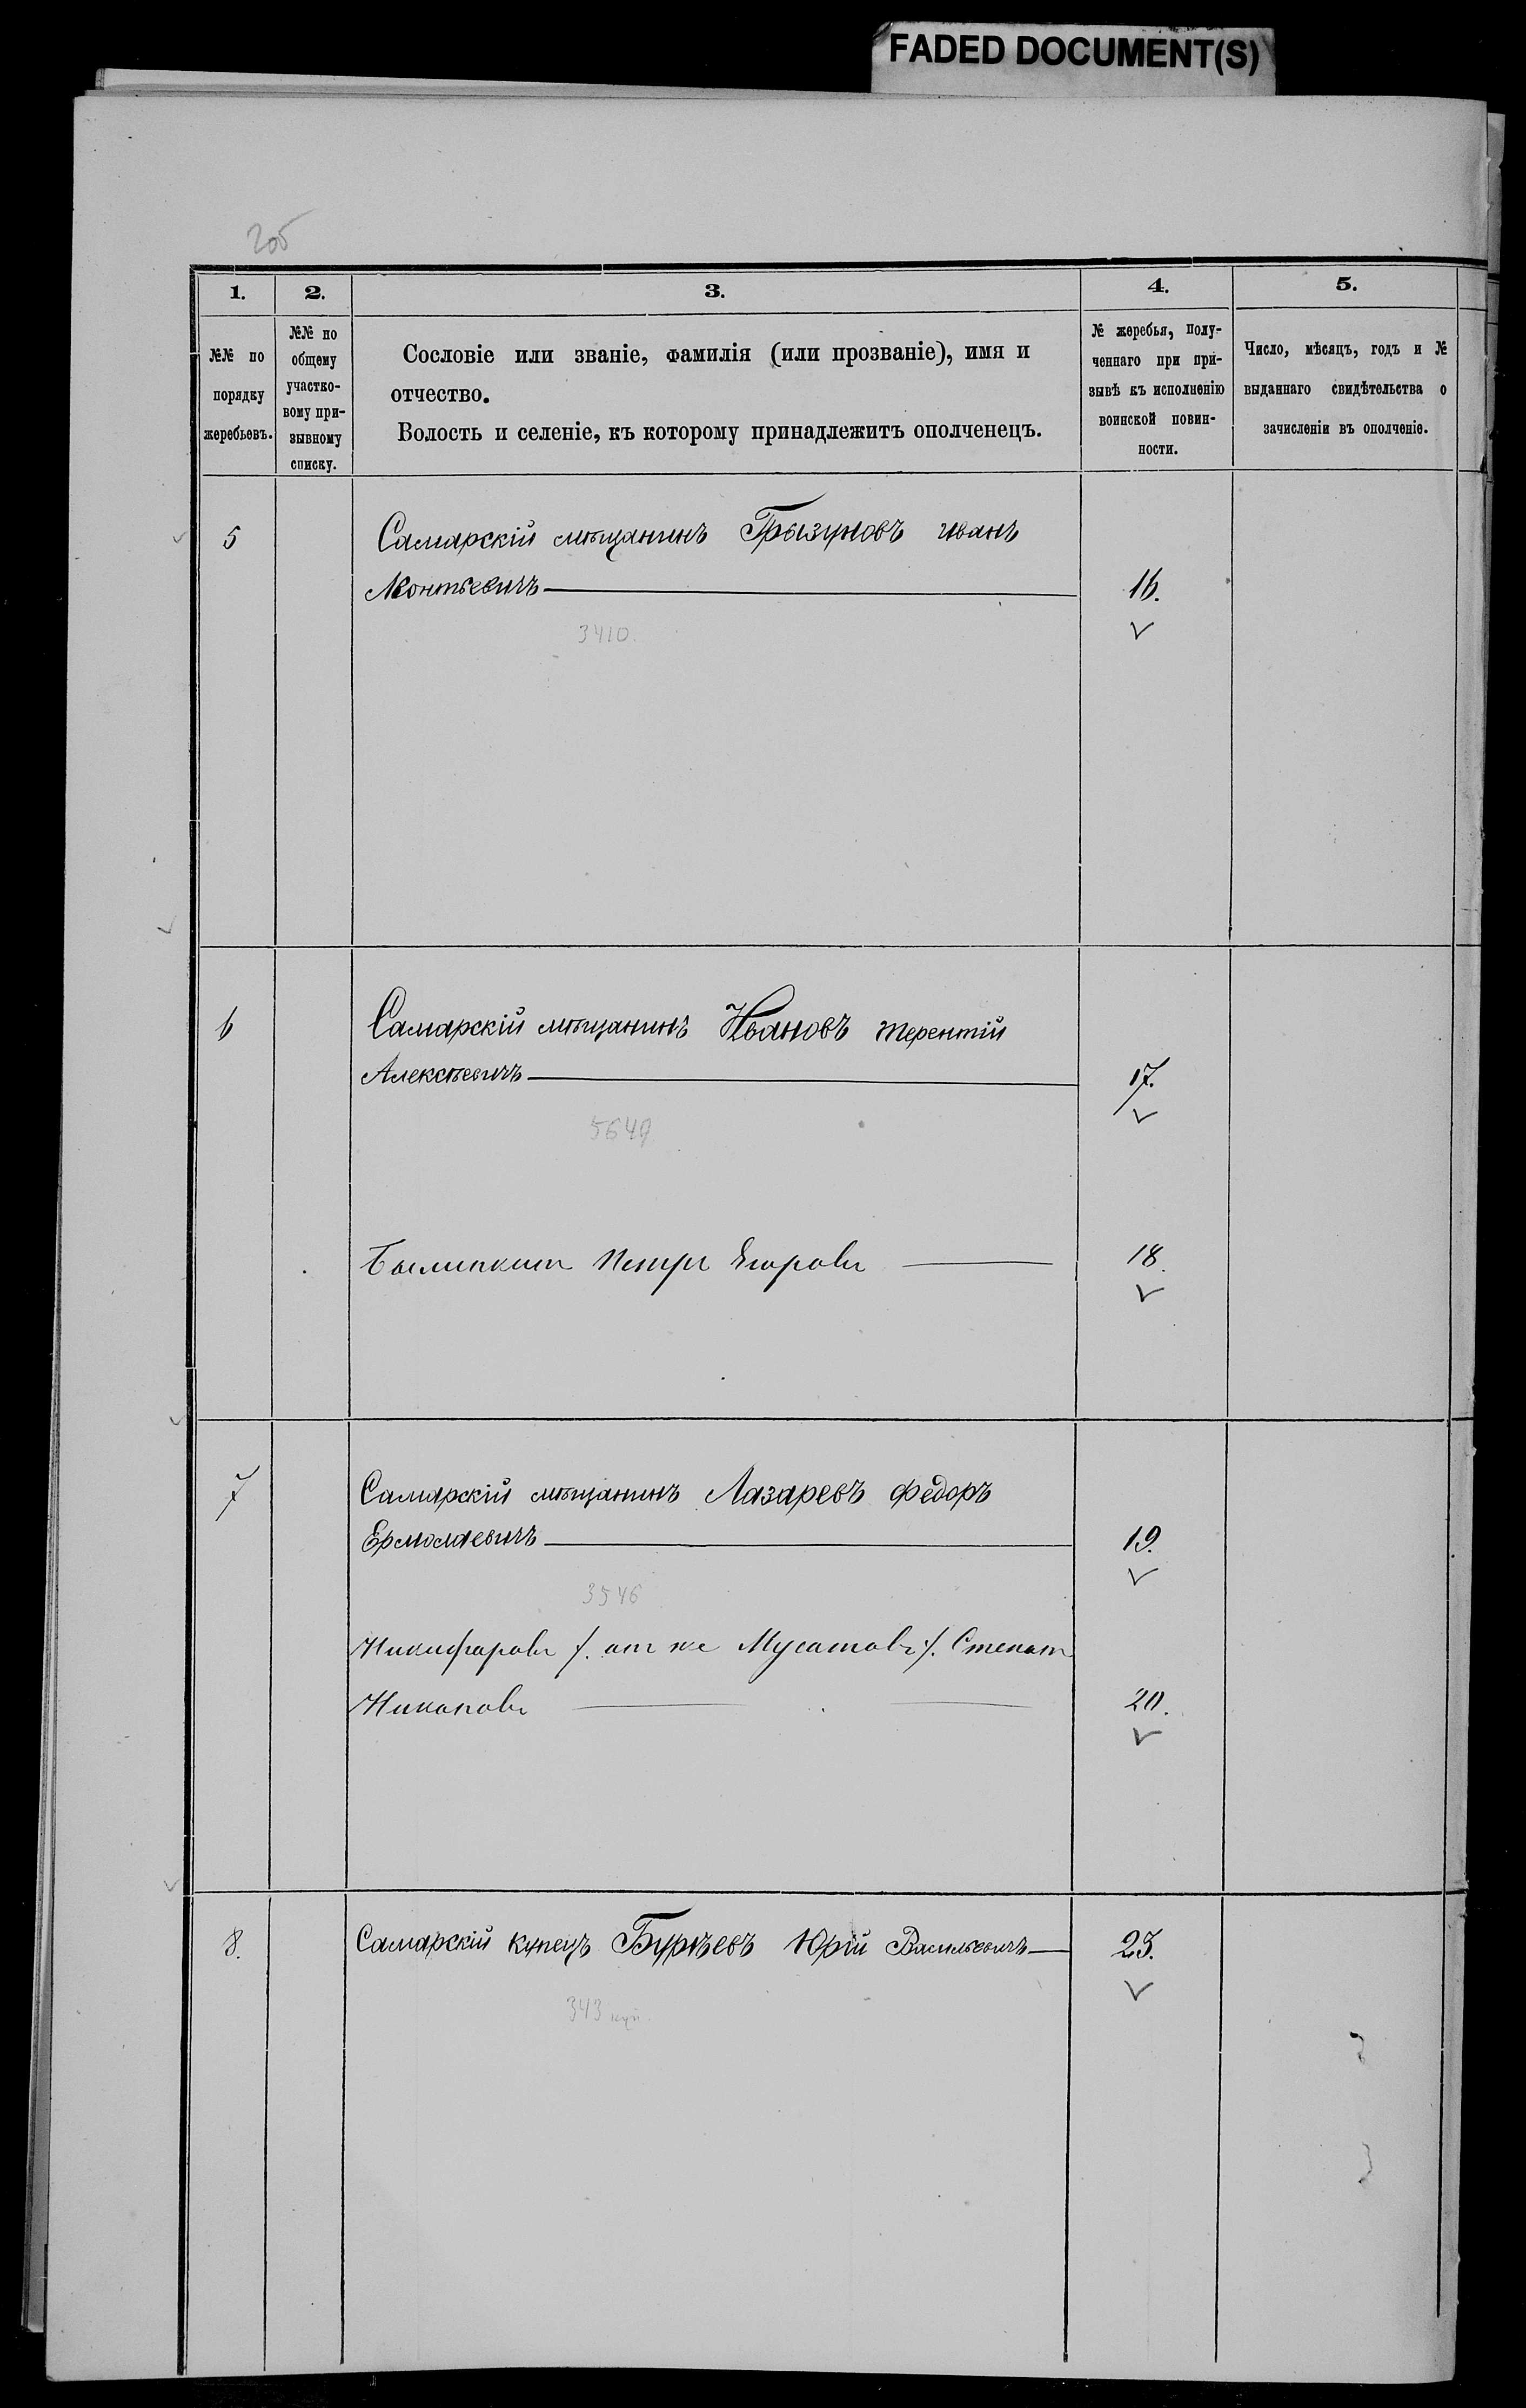 FADED DOCUMENT(S)
205
1. 2. 3. 4. 5.
№№ по
порядку
жеребьевъ.
№№ по
общему
участко-
вому при-
зывному
списку.
Сословіе или званіе, фамилія (или прозваніе), имя и
отчество.
Волость и селеніе, къ которому принадлежитъ ополченецъ.
№ жеребья, полу-
ченнаго при при-
зывѣ къ исполненію
воинской повин-
ности.
Число, мѣсяцъ, годъ и №
выданнаго свидѣтельства о
зачисленіи въ ополченіе.
5 Самарскій мѣщанинъ Грызуновъ иванъ
Леонтьевичъ 16.
3410.
6 Самарскій мѣщанинъ Ивановъ терентій
Алексѣевичъ 17.
5649
Петръ Егоровъ 18.
7 Самарскій мѣщанинъ Лазаревъ федоръ
Ермолаевичъ 19.
3546
Никифоровъ /. онъ же Мусатовъ /. Степанъ
20.
8. Самарскій купецъ Бурѣевъ Юрій Васильевичъ 23.
343 куп.